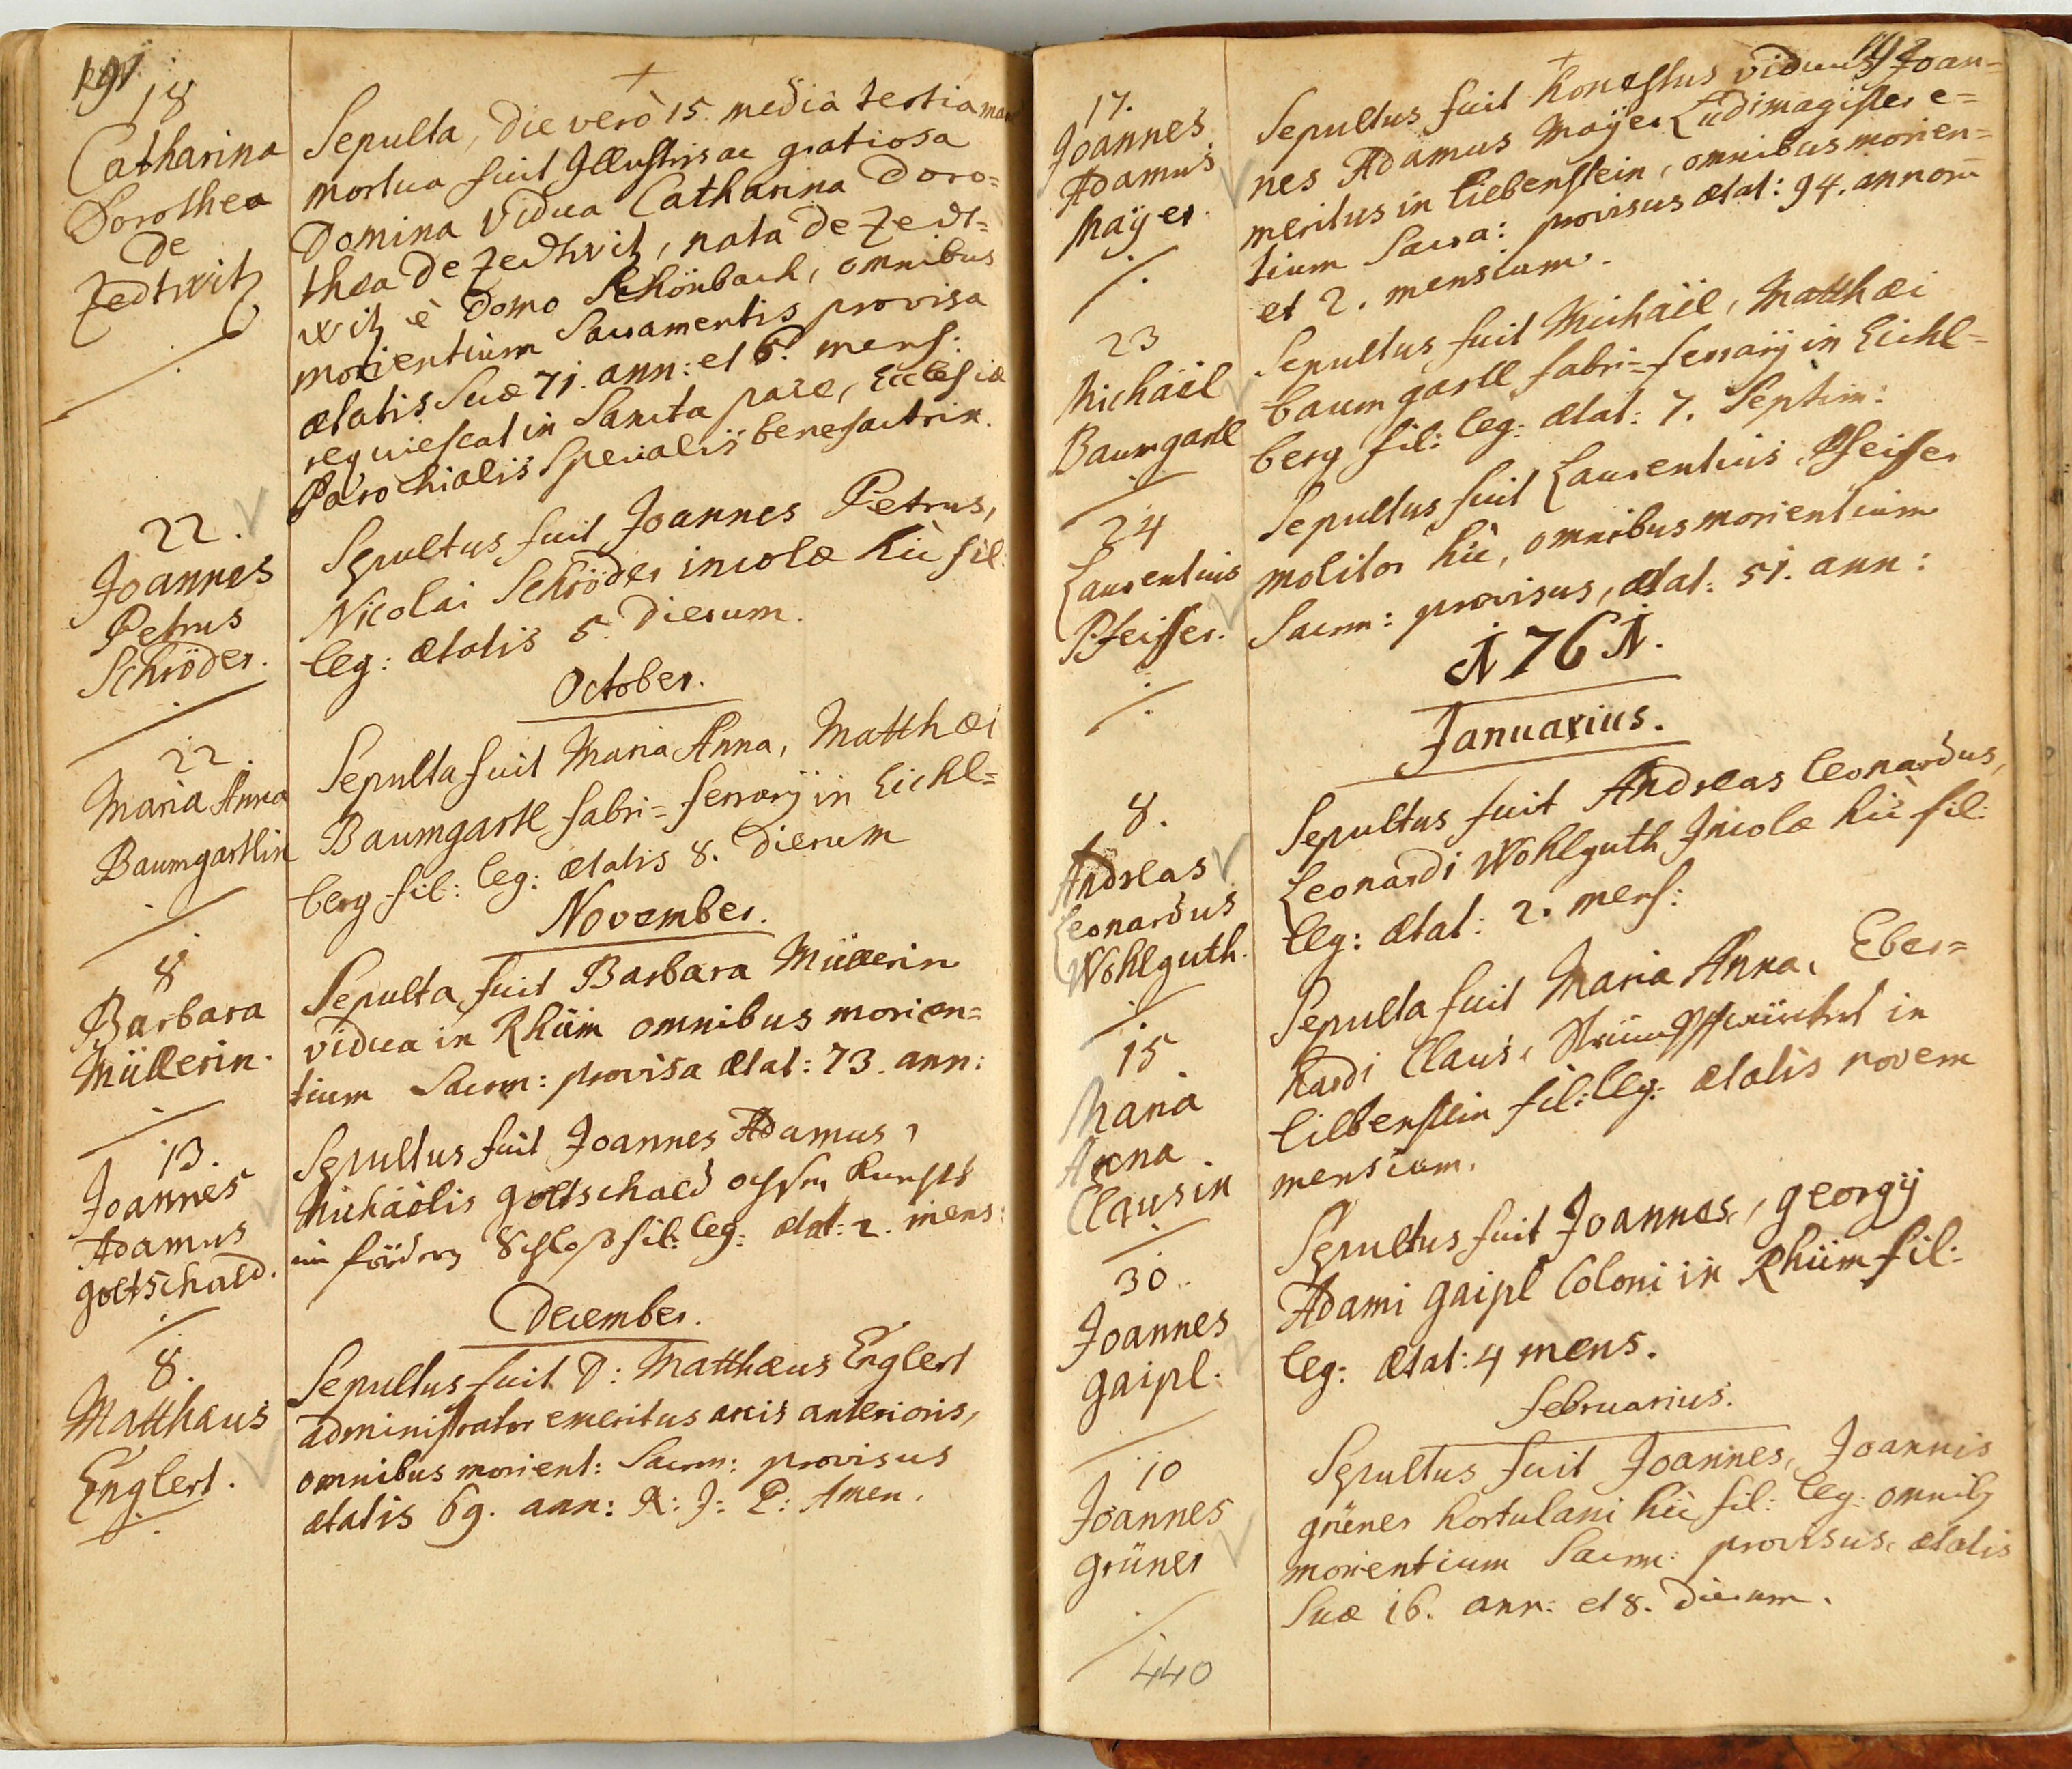 191
18
Catharina
Dorothea
de
Zedtwitz
Sepulta, die verò 15. media tertia
mortua fuit Illustris ac gratiosa
Domina Vidua Catharina Doro=
thea de Zedtwitz, nata de Zedt=
witz è Domo Schönbach, omnibus
morientium Sacramentis provisa
ætatis Suæ 71. ann: et 6. mens:
requiescat in Sancta pace, Ecclesiæ
Parochialis Specialis benefactrix.
22.
Joannes
Petrus
Schröder.
Sepultus fuit Joannes Petrus,
Nicolai Schröder incolæ hic fil:
leg: ætatis 5. dierum.
October.
22.
Maria Anna
Baumgartlin
Sepulta fuit Maria Anna, Matthæi
Baumgartl fabri=ferrarij in Eichl=
berg fil: leg: ætatis 8. dierum
November.
8
Barbara
Müllerin.
Sepulta fuit Barbara Müllerin
vidua in Rhüm omnibus morien=
tium Sacrm: provisa ætat: 73. ann:
13.
Joannes
Adamus
goltschald.
Sepultus fuit Joannes Adamus,
Michäelis goltschald
im fördern Schloß fil: leg: ætat: 2. mens:
December.
8.
Matthæus
Englert.
Sepultus fuit D: Matthæus Englert
administrator emeritus arcis anterioris,
omnibus morient: Sacrm: provisus
ætatis 69. ann: R: I: P: Amen.
192
17.
Joannes
Adamus
Maÿer.
Sepultus fuit honestus viduus Joan=
nes Adamus Maÿer Ludimagister e=
meritus in Liebenstein, omnibus morien=
tium Sacra: provisus ætat: 94. annorum
et 2. mensium.
23
Michäel
Baumgartl
Sepultus fuit Michäel, Matthæi
baumgartl fabri=ferrarij in Eichl=
berg fil: leg: ætat: 7. Septim:
24
Laurentius
Pfeiffer.
Sepultus fuit Laurentius Pfeiffer
molitor hic, omnibus morientium
Sacrm: provisus, ætat: 51. ann:
1761.
Januarius.
8.
Andreas
Leonardus
Wohlguth.
Sepultus fuit Andreas Leonardus,
Leonardi Wohlguth Incolæ hic fil:
leg: ætat: 2. mens:
15
Maria
Anna
Clausin
Sepulta fuit Maria Anna, Eber=
hardi Claus, Strumpffwürckers in
Liebenstein fil: leg: ætatis novem
mensium.
30.
Joannes
gaipl.
Sepultus fuit Joannes, georgij
Adami gaipl Coloni in Rhüm fil:
leg: ætat: 4 mens.
februarius.
10
Joannes
grüner
Sepultus fuit Joannes, Joannis
grüner hortulani hic fil: leg: omnibg
morientium Sacrm: provisus, ætatis
Suæ 16. ann: et 8. dierum.
440